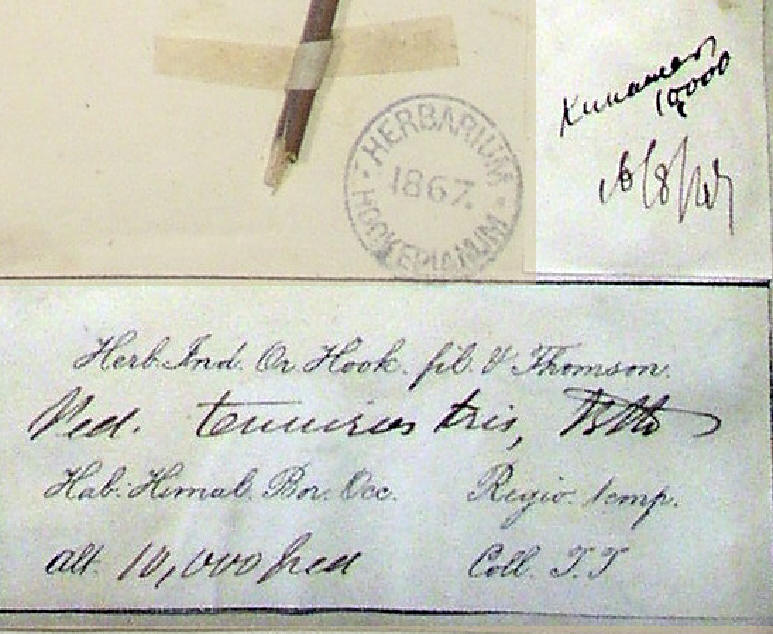 HERBARIUM HOOKERIANUM
1867.
Kunawar
Herb. Ind. Or. Hook. fil. & Thomson.
Ped. tenuirostris, Bth
Hab: Himal. Bor. Occ. Regio. temp.
alt. 10,000 ped
Coll. T. T